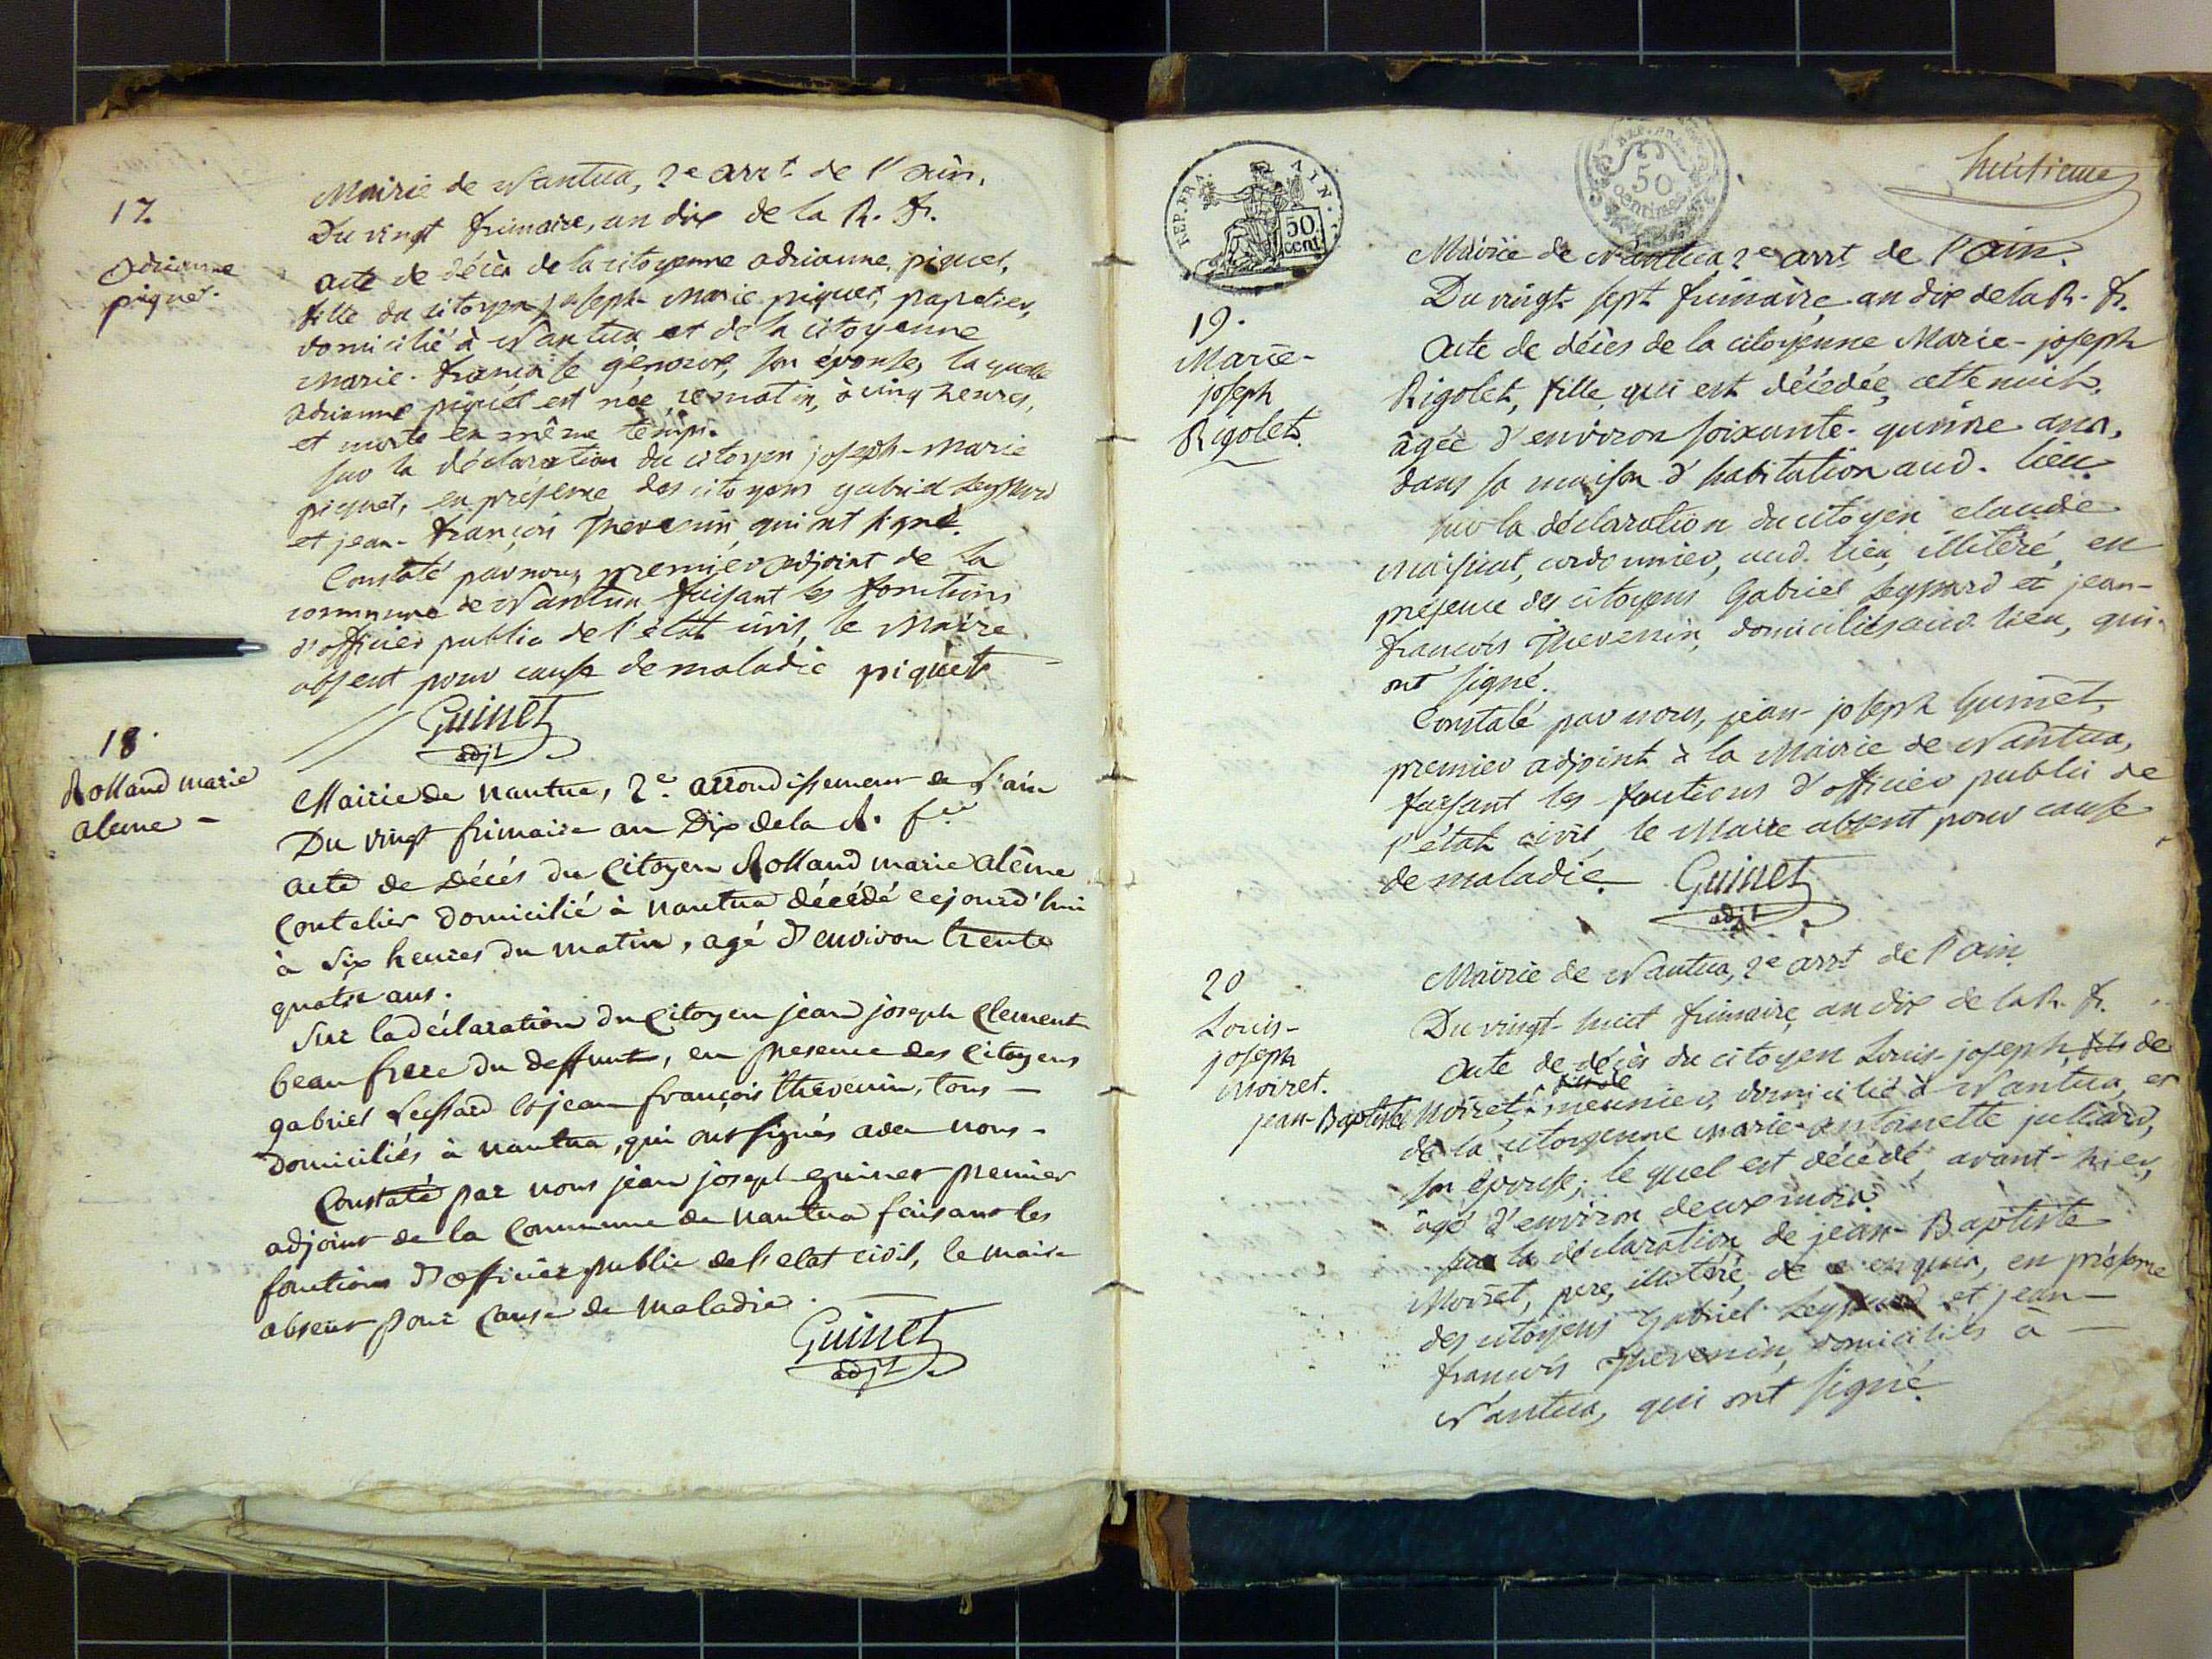 17.
Adrianne
piquet.
Mairie de Nantua, 2e arrt de l'ain.
Du vingt frimaire, an dix de la R. fr.
acte de décès de la citoyenne adrianne piquet,
fille du citoyen joseph-Marie piquet, papetier,
domicilié à Nantua et de la citoyenne
Marie-françoise genoux, son épouse, laquelle
adrianne piquet est née, ce matin, à cinq heures,
et morte en même temps.
sur la déclaration du citoyen joseph-Marie
piquet, en présence des citoyens gabriel Leyssard
et jean-françois thevenin, qui ont signé.
Constaté par nous, premier adjoint de la
commune de Nantua faisant les fonctions
d'officier public de l'état civil, le Maire
absent pour cause de maladie piquet
Guinet
adjt
18.
Rolland marie
aleme -
Mairie de nantua, 2e. arrondissement de l'ain
Du vingt frimaire an Dix de la R. fse
acte de Décés du Citoyen Rolland marie alême
Coutelier domicilié à nantua décédé cejourd'hui
à six heures du matin, agé d'environ trente
quatre ans.
Sur la déclaration du Citoyen jean joseph Clement
beau frere du deffunt, en presence des Citoyens
gabriel Leyssard et jean françois thévenin, tous -
domiciliés à nantua, qui ont signés avec nous -
Constaté par nous jean joseph guinet premier
adjoint de la Commune de nantua faisant les
fonctions d'officier public de l'etat civil, le maire
absent pour Cause de maladie. -
Guinet
adjt
REP. FRA. AIN.
50
cent.
REP. FRA.
50
centimes
huitieme
19.
Marie-
joseph
Rigolet.
Mairie de Nantua 2e arrt de l'ain.
Du vingt-sept frimaire an dix de la R. fr.
Acte de décès de la citoyenne Marie-joseph
Rigolet, fille, qui est décédée, cette nuit,
âgée d'environ soixante-quinze ans,
dans sa maison d'habitation aud. lieu.
sur la déclaration du citoyen claude
Maissiat, cordonnier, aud. lieu, illitéré, en
présence des citoyens Gabriel Leyssard et jean-
françois Thevenin, domiciliés aud. lieu, qui
ont signé.
Constaté par nous, jean-joseph Guinet,
premier adjoint à la Mairie de Nantua,
faisant les fontions d'officier public de
l'état civil, le Maire absent pour cause
de maladie. Guinet
adjt
20
Louis-
joseph
Moiret.
Mairie de Nantua, 2e arrt de l'ain.
Du vingt-huit frimaire, an dix de la R. fr.
Acte de décès du citoyen Louis-joseph, fils de
fils de
jean-Baptiste Moiret, meunier, domicilié à Nantua, et
de la citoyenne Marie-antoinette julliard,
son épouse; le quel est décédé, avant-hier,
âgé d'environ deux mois.
sur la déclaration de jean-Baptiste
Moiret, pere, illitéré, de ce enquis, en présence
des citoyens Gabriel Leyssard et jean-
françois Thevenin, domiciliés à -
Nantua, qui ont signé.